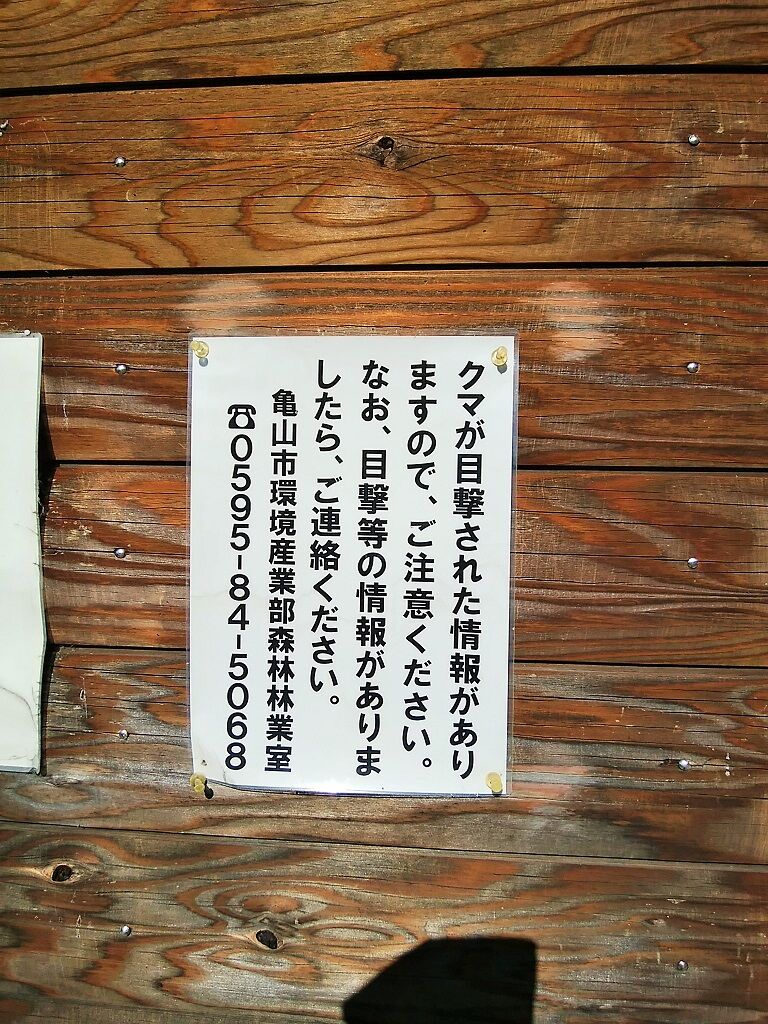 クマが目撃された情報があり
ますので、ご注意ください。
なお、目撃等の情報がありま
したら、ご連絡ください。
亀山市環境産業部森林林業室
☎0595-84-5068